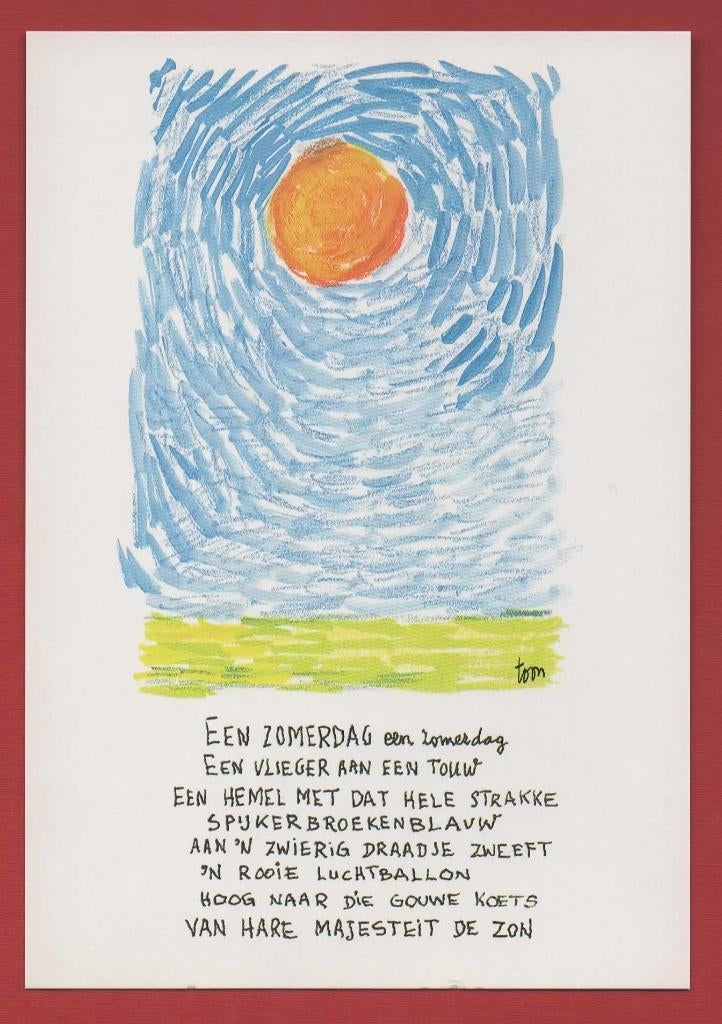 toon
EEN ZOMERDAG een zomerdag
EEN VLIEGER AAN EEN TOUW
EEN HEMEL MET DAT HELE STRAKKE
SPIJKERBROEKENBLAUW
AAN 'N ZWIERIG DRAADJE ZWEEFT
'N ROOIE LUCHTBALLON
HOOG NAAR DIE GOUWE KOETS
VAN HARE MAJESTEIT DE ZON